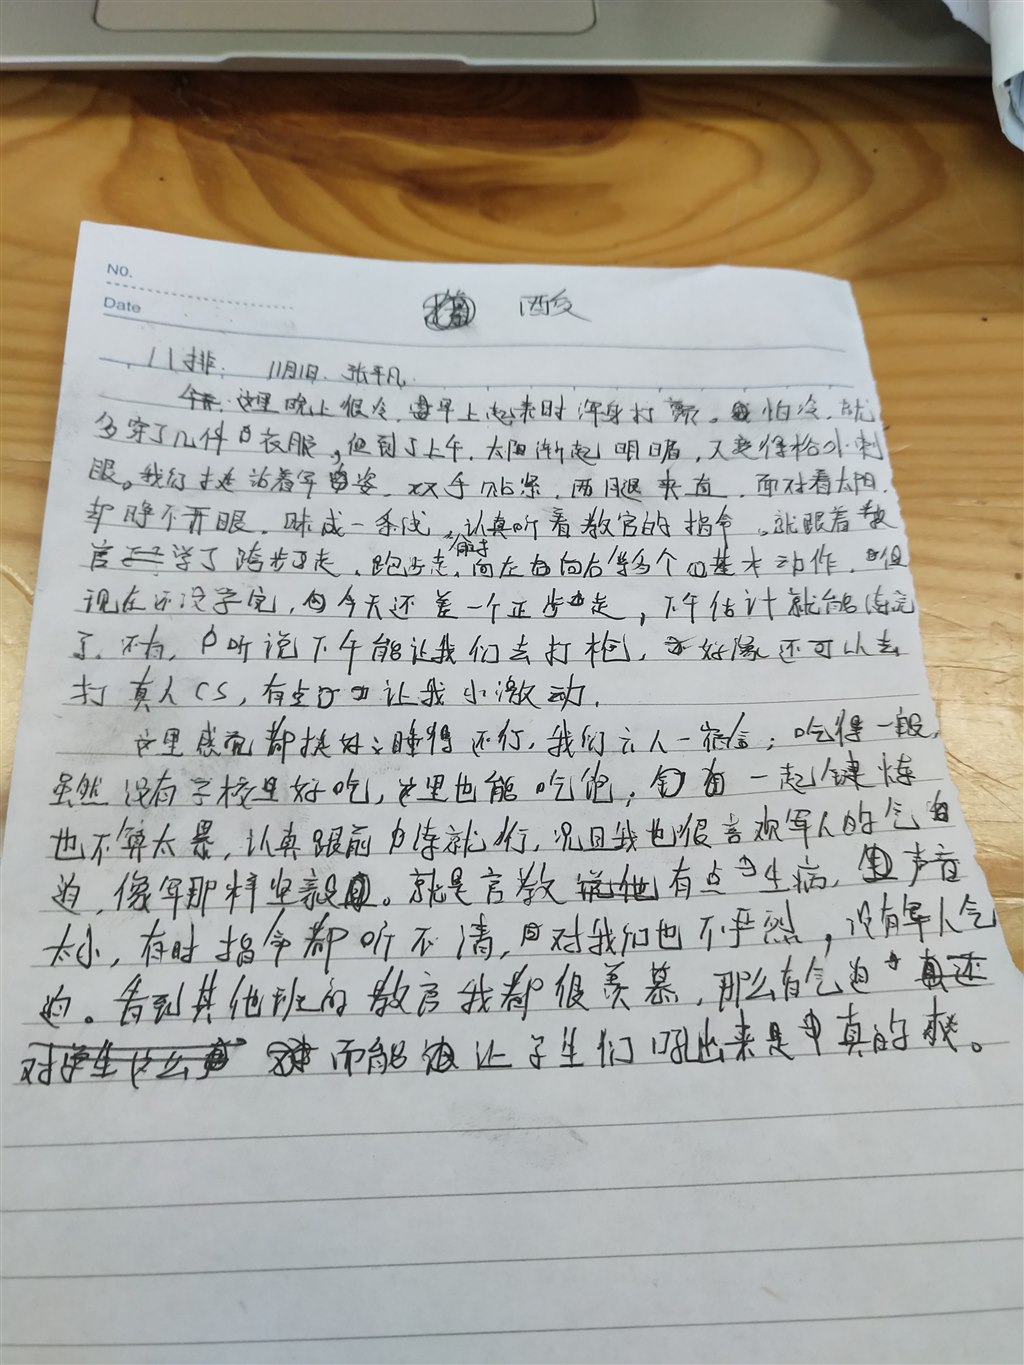 NO.
Date
酸
11排. 11月1日. 张平凡.
这里晚上很冷. 早上起来时浑身打颤。怕冷, 就
多穿了几件衣服, 但到了上午. 太阳渐起 明媚, 又变得格外刺
眼。我们站着军姿, 双手贴紧, 两腿夹直, 面对着太阳.
却睁不开眼. 眯成一条线, 认真听着教官的指令. 就跟着教
官学了跨步走, 跑步走, 向左向右向后等多个基本动作. 但
现在还没学完, 今天还差一个正步走, 下午估计就能练完
了. 听说下午能让我们去打枪, 好像还可以去
打真人CS, 有点让我小激动.
这里感觉都挺好: 睡得还行, 我们六人一宿舍; 吃得一般,
虽然没有学校里好吃, 这里也能吃饱; 一起健炼
也不算太累, 认真跟前练就行, 况且我也很喜欢军人的气
迫, 像军那样坚毅。就是官教有点生病, 声音
太小, 有时指令都听不清, 对我们也不严烈, 没有军人气
迫。看到其他班的教官我都很羡慕, 那么有气迫
而能让学生们吼出来是真的